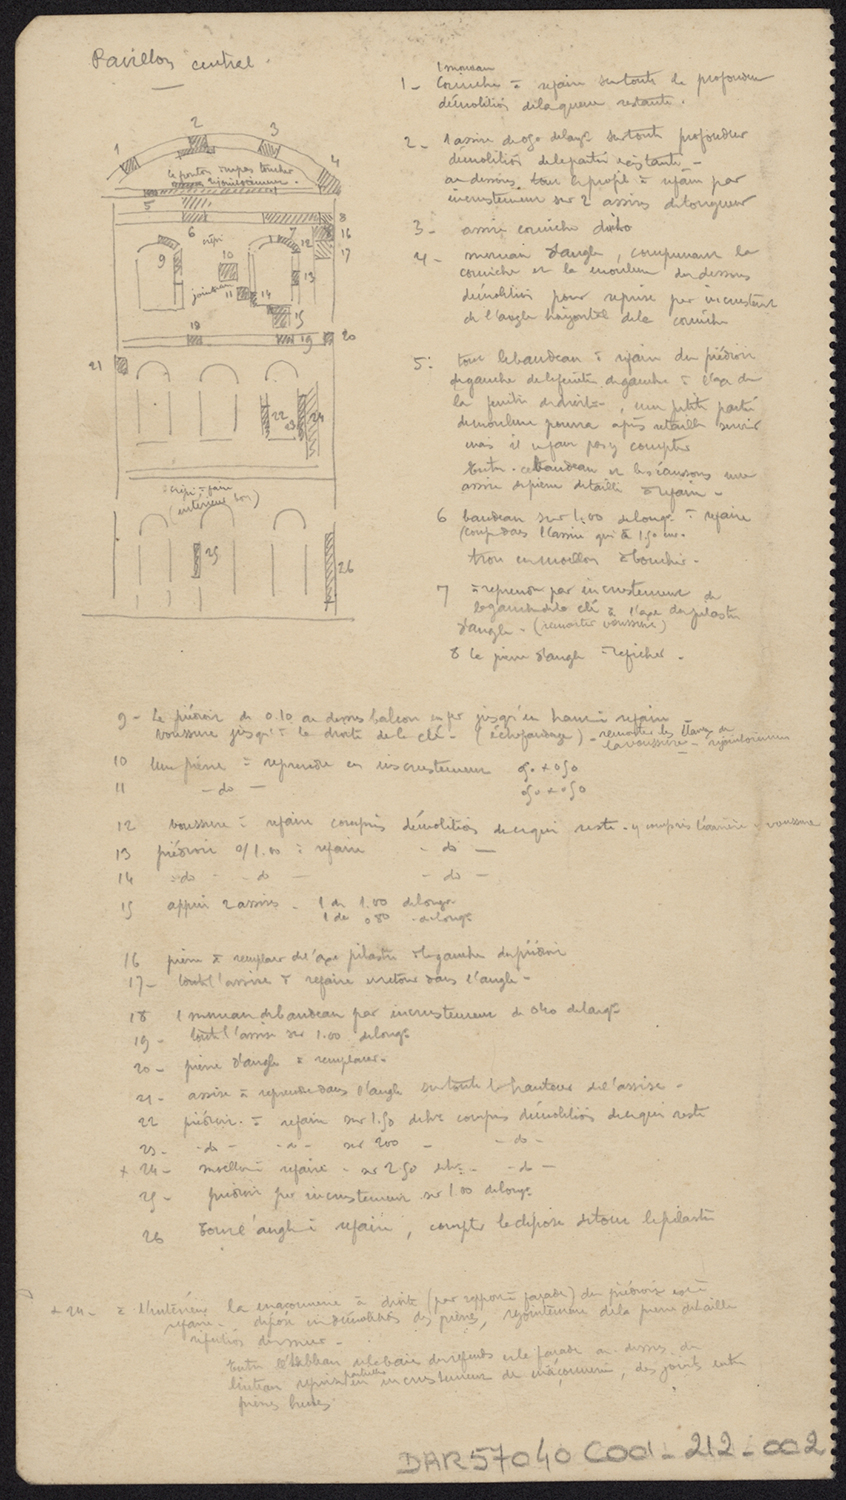 Pavillon central.
1
2
3
4
le fronton ne pas toucher
rejointoiement.
5
6
7
8
16
17
9
crépi
10
12
13
jointoiem
11
14
15
18
19
20
21
22
23
24
crépi à faire
(intérieur bon)
25
26
1 morceau
1 - Corniche à refaire sur toute la profondeur
démolition de la queue restante.
2 - 1 assise de 0,90 de large sur toute profondeur
démolition de la partie existante -
au dessus, tout le profil à refaire par
incrustement sur 2 assises de longueur
3 - assise corniche ditto
4 - morceau d'angle, comprenant la
corniche et la moulure du dessus
démolition pour reprise par incrustement
de l'angle horizontal de la corniche
5: tout le bandeau à refaire du piédroit
de gauche de la fenêtre de gauche à l'axe de
la fenêtre de droite, une petite partie
de moulure pourra après retaille servir
mais il ne faut pas y compter
Entre ce bandeau et les écussons une
assise de pierre de taille à refaire -
6 bandeau sur 1.00 de longr à refaire
(coupé dans l'assise qui a 1,50 env.
trou en moellon à boucher.
7 à reprendre par incrustement de
la gauche de la clé à l'axe du pilastre
d'angle - (remonter voussure)
8 la pierre d'angle à reficher.
9 - Le piédroit de 0.10 au dessus balcon en fer jusqu'en haut à refaire
voussure jusqu'à la droite de la clé - (échafaudage) - remonter les
la voussure - rejointoiement
10 Une pierre à reprendre en incrustement 0,50 x 0,50
11 - do - 0,50 x 0,50
12 voussure à refaire compris démolition de ce qui reste - y compris l'arrière voussure
13 piédroit s/ 1.00 à refaire - do -
14 - do - - do - - do -
15 appui 2 assises - 1 de 1.00 de longr
1 de 0,80 de longr
16 pierre à remplacer de l'axe pilastre à la gauche du piédroit
17 - toute l'assise à refaire en retour dans l'angle -
18 1 morceau de bandeau par incrustement de 0,40 de large
19 - toute l'assise sur 1.00 de longr
20 - pierre d'angle à remplacer.
21 - assise à reprendre dans l'angle sur toute la hauteur de l'assise -
22 piédroit à refaire sur 1.50 de hr compris démolition de ce qui reste
23 - - do - - do - sur 200 - - do -
x 24 - moellon à refaire - sur 2.50 de hr - - do -
25 - piédroit par incrustement sur 1.00 de longr
26 Tout l'angle à refaire, compter la dépose de tout le pilastre
x 24 - à l'intérieur la maçonnerie à droite (par rapport à façade) du piédroit est à
refaire - dépose en démolition des pierres, rejointoiement de la pierre de taille
réfection du mur -
Entre le tableau de la baie de refends et la façade au dessus du
linteau reprise partielle en incrustement de maçonnerie, des joints entre
pierres brutes.
DAR57040C001-212-002